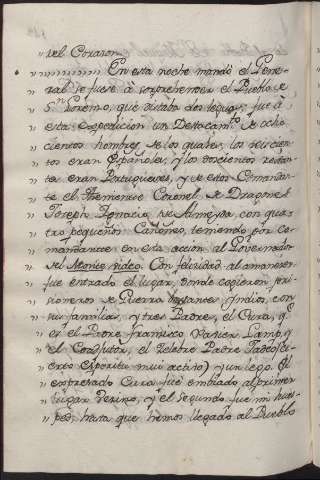 del Corazon.
" En esta noche mandó el Gene-
" ral se fuese à sorprehender el Pueblo de
" Sn Lorenzo, que distaba dos leguas; fue à
" esta expedicion un Destacamto de ocho
" cientos hombres de los quales, los seiscien-
" tos eran Españoles, y los doscientos restan-
" te eran Portugueses, y de estos Comandan-
" te el Theniente Coronel de Dragones
" Joseph Ignacio de Almeyda, con qua-
" tro pequeños Cañones, teniendo por co-
" mandante en esta acción al Governador
" del Monte video. Con felicidad al amanecer
" fue entrado el lugar, donde cogieron pri-
" sioneros de Guerra bastantes Indios, con
" sus familias, y tres Padres, el Cura, q.
" es el Padre francisco Xavier Lamp, y
" el Conductor, el Celebre Padre Tadeo (ci-
" erto Espiritu mui activo) y un lego. El
" expresado Cura fue embiado al primer
" lugar vezino, y el Segundo fue mi hues-
" ped, hasta que hemos llegado al Pueblo